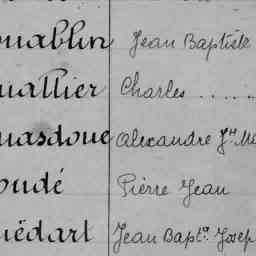 ouablin Jean Baptiste
uallier Charles .....
uasdoue Alexandre Jh. Me
oudé Pierre Jean
uëdart Jean Bapt.te Josep